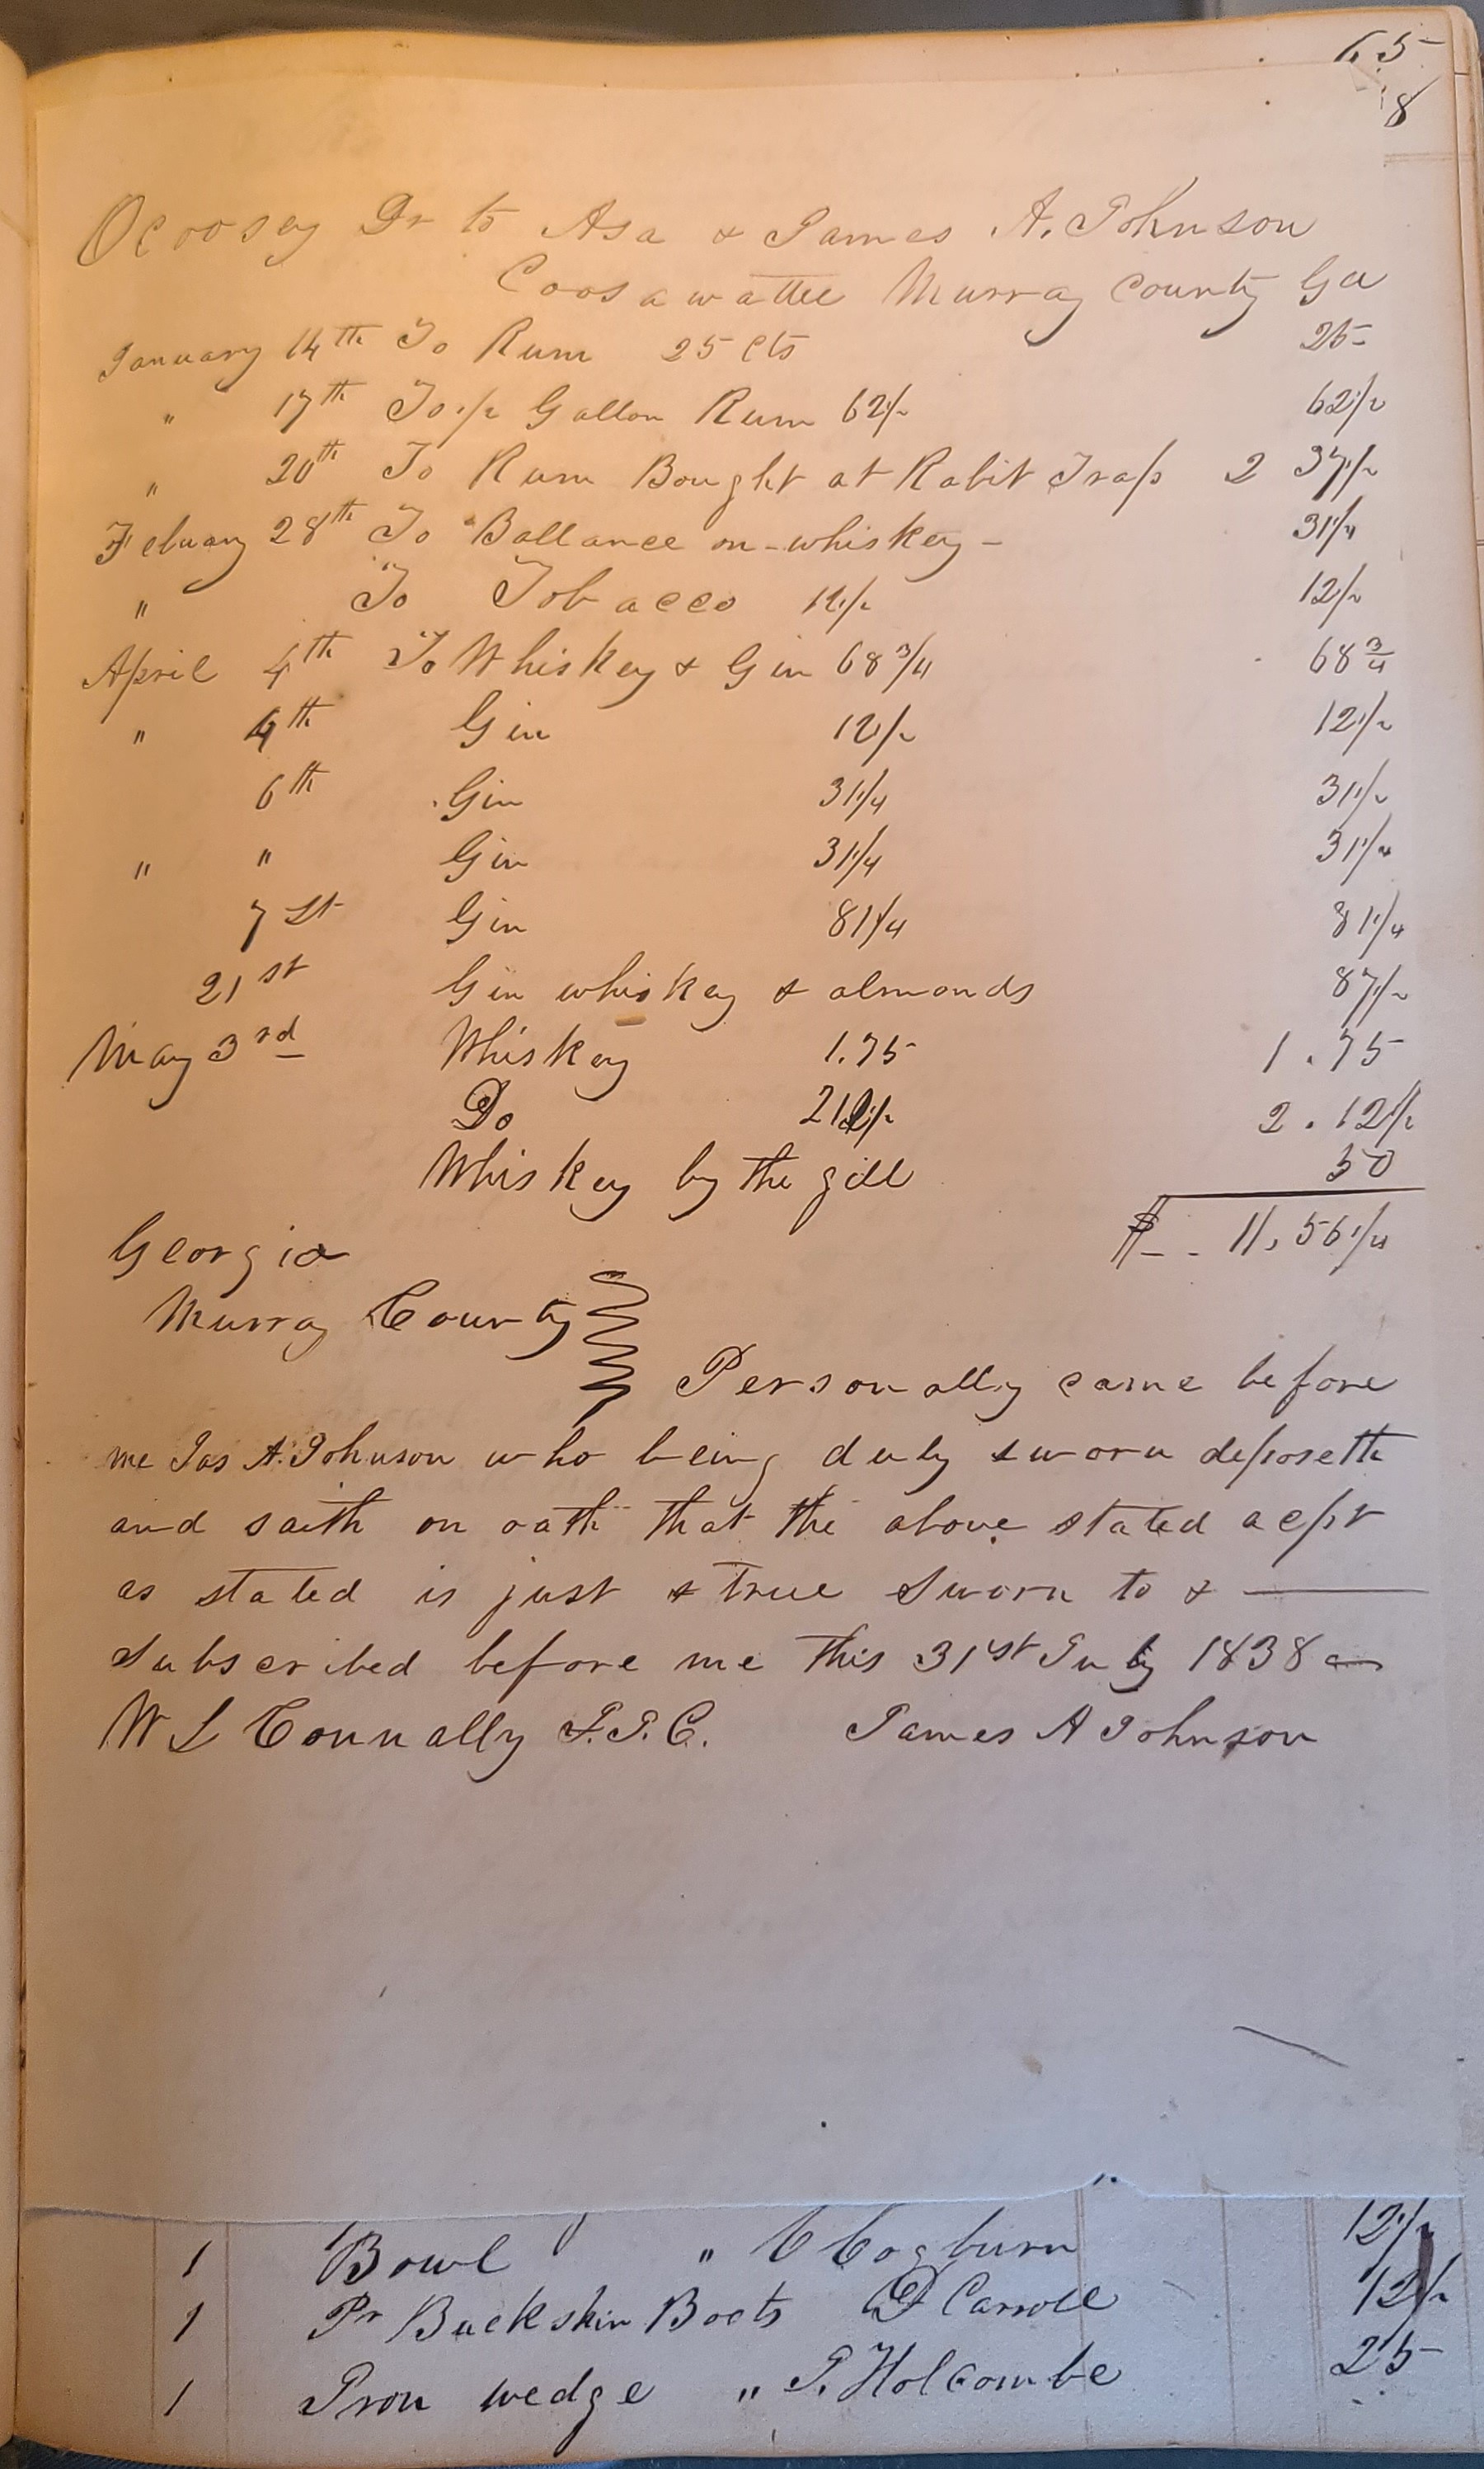 65
8
Ocoosey Dr to Asa & James A. Johnson
Coosawattee Murray County Ga
January 14th To Rum 25 cts 25
" 17th To 1/2 Gallon Rum 62 1/2 62 1/2
" 20th To Rum Bought at Rabit Trap 2 37 1/2
Febuary 28th To Ballance on - whiskey - 31 1/4
" To Tobacco 12 1/2 12 1/2
April 4th To Whiskey & Gin 68 3/4 68 3/4
" 4th Gin 12 1/2 12 1/2
6th Gin 31 1/4 31 1/2
" " Gin 31 1/4 31 1/4
7 st Gin 81 1/4 81 1/4
21st Gin whiskey & almonds 87 1/2
May 3rd Whiskey 1.75 1.75
Do 212 1/2 2.12 1/2
Whiskey by the gill 50
$ - - 11,56 1/4
Georgia
Murray County
Personally came before
me Jas A. Johnson who being duly sworn deposeth
and saith on oath that the above stated acpt
as stated is just & true Sworn to &
Subscribed before me this 31st July 1838
W L Connally J.I.C. James A Johnson
1 Bowl " C Cogburn 12 1/2
1 Pr Buckskin Boots D Carroll 12 1/2
1 Iron wedge " P. Holcombe 25